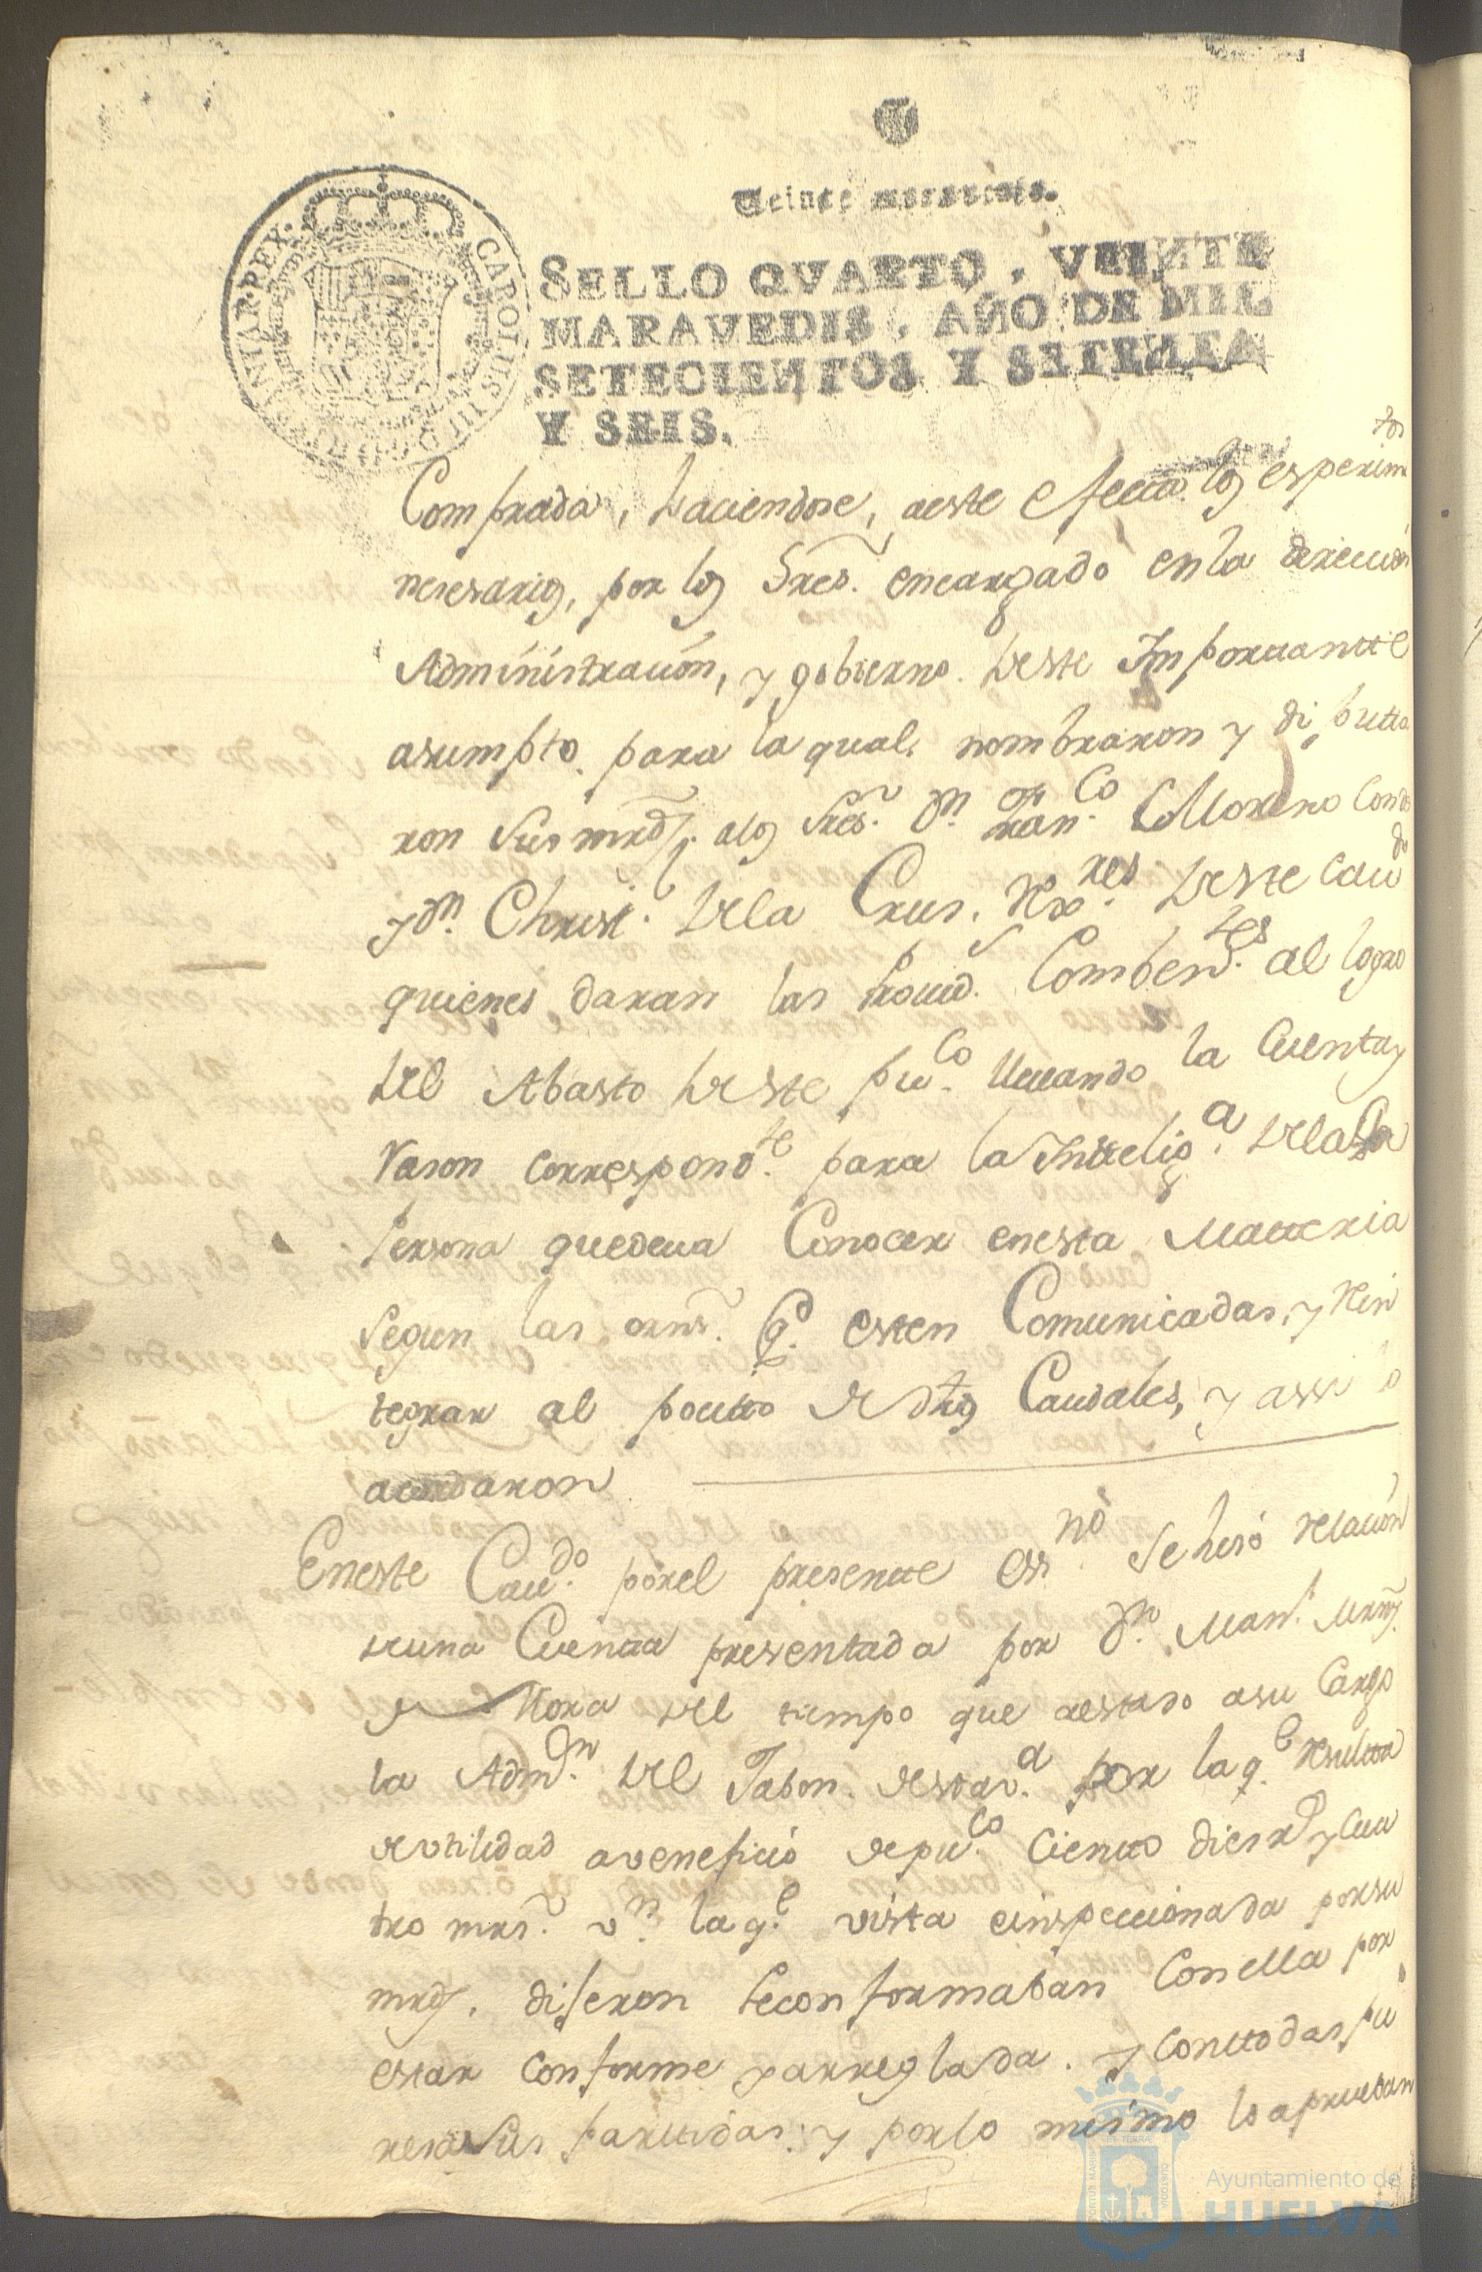 Veinte maravedis.
SELLO QVARTO, VEINTE
MARAVEDIS, AÑO DE MIL
SETECIENTOS Y SETENTA
Y SEIS.
CAROLUS III D
HISPANIAR REX
Comprada, haciendose, aeste efecto los esperim.tos
nesesarios, por los Sres. encargado enla direccion
Administracion, y gobierno deste Importantte
asumpto. para la qual, nombraron y diputta
ron Sus mrds. alos Sres. Dn. Fran.co Moreno Conde
y Dn. Christ. dela Crus. Rx.res deste Cau.do
quienes daran las Provid. Comben.tes al logro
del Abasto deste pu.co llevando la Cuenta y
Rason correspond.te para la Inttelig.a dela
Persona quedeva Conocer enesta Matteria
Segun las orns. q.e esten Comunicadas, y Rein
tegrar al pocitto de dhos Caudales, y assi lo
acordaron
Eneste Cau.do porel presentte ess.no Sehiso relacion
deuna Cuentta presentada por Dn. Man.l Mrnz.
de Mora del tiempo que aestado asu Cargo
la Adm.on del Jabon. destav.a por laq.e resultta
deutilidad aveneficio depu.co Ciento dies rs. y Cua
tro mrs. vn. laq.e vista einspeccionada porsu
mrds. dijeron seconformaban Conella por
estar conforme y arreglada. y conttodas pu
resasus parttidas: y porlo mismo laapruevan
Ayuntamiento de
HUELVA